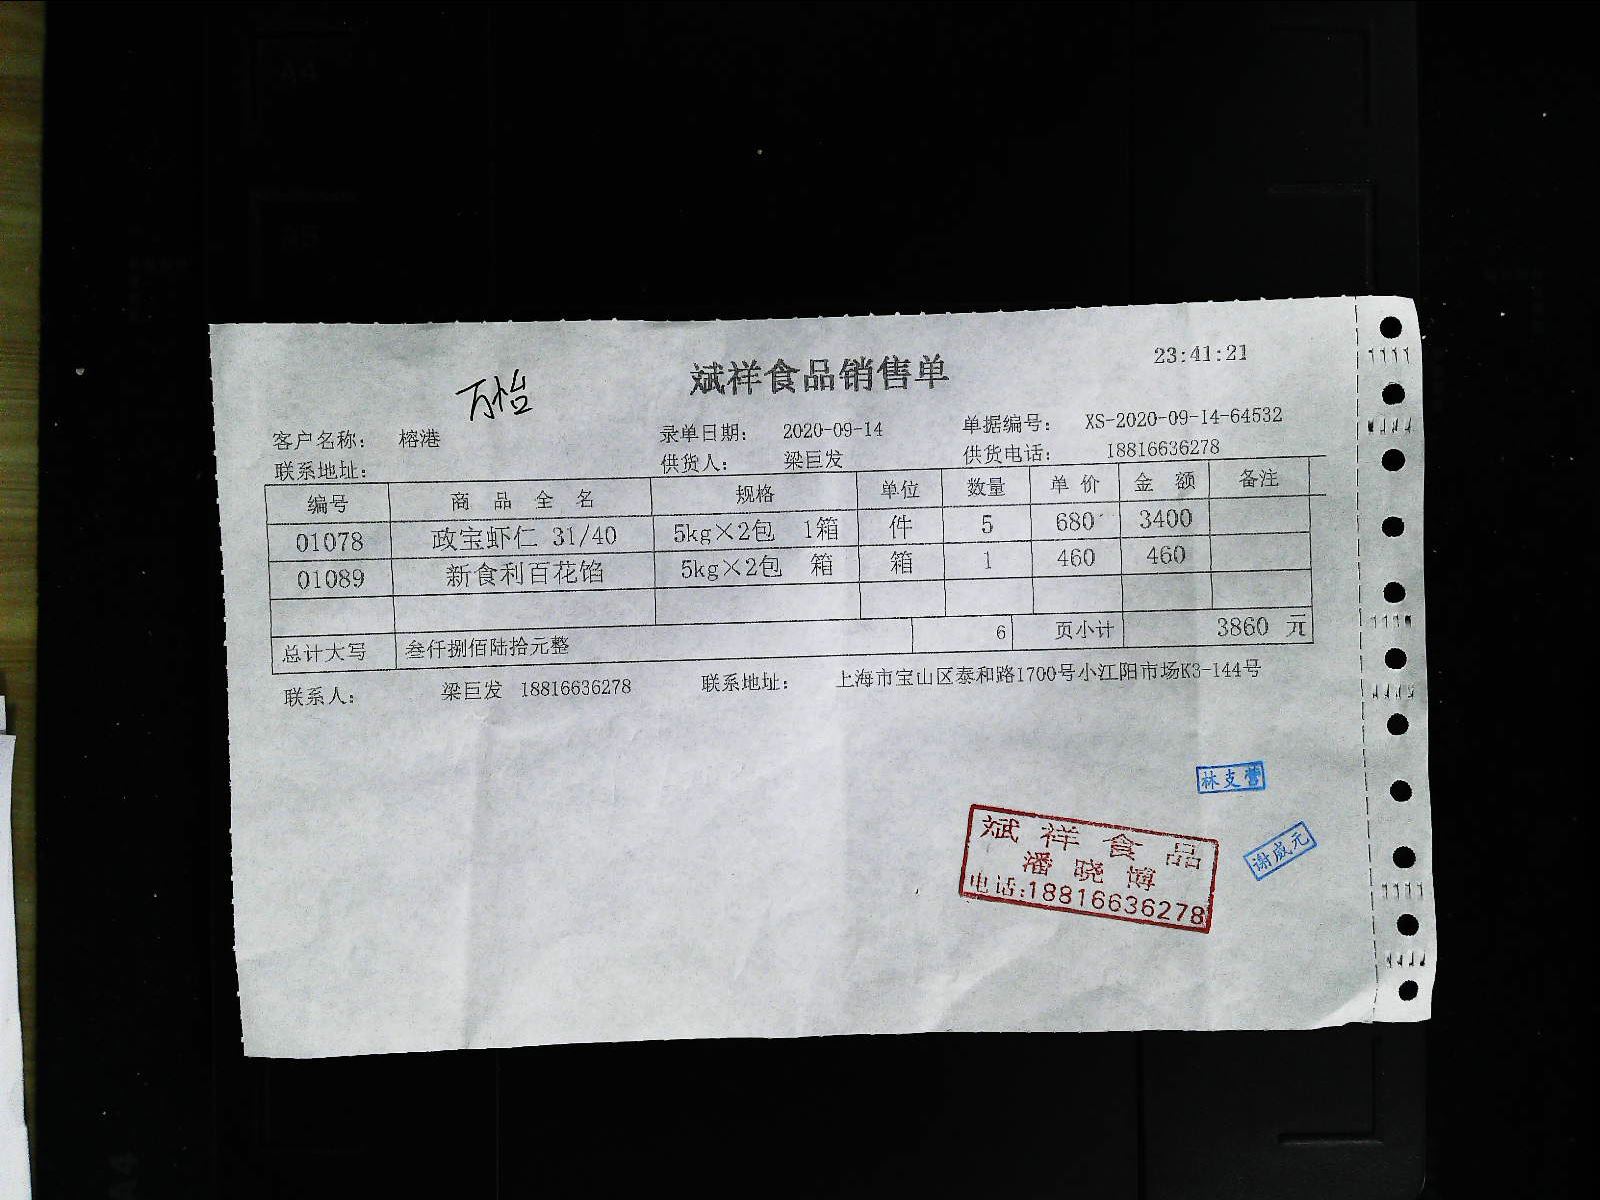 斌祥食品销售单
23:41:21
万怡
客户名称： 榕港 录单日期： 2020-09-14 单据编号： XS-2020-09-14-64532
联系地址： 供货人： 梁巨发 供货电话： 18816636278
编号 商品全名 规格 单位 数量 单价 金额 备注
01078 政宝虾仁 31/40 5kg×2包 1箱 件 5 680 3400
01089 新食利百花馅 5kg×2包 箱 箱 1 460 460
总计大写 叁仟捌佰陆拾元整 6 页小计 3860 元
联系人： 梁巨发 18816636278 联系地址： 上海市宝山区泰和路1700号小江阳市场K3-144号
林支营
斌祥食品
潘晓博
电话:18816636278
谢成元
A4
A5
A4